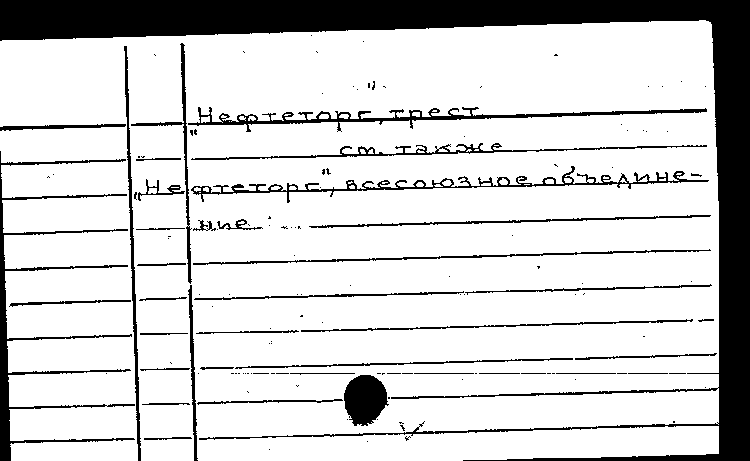 „Нефтеторг", трест
см. также
„Нефтеторг", всесоюзное объедине-
ние